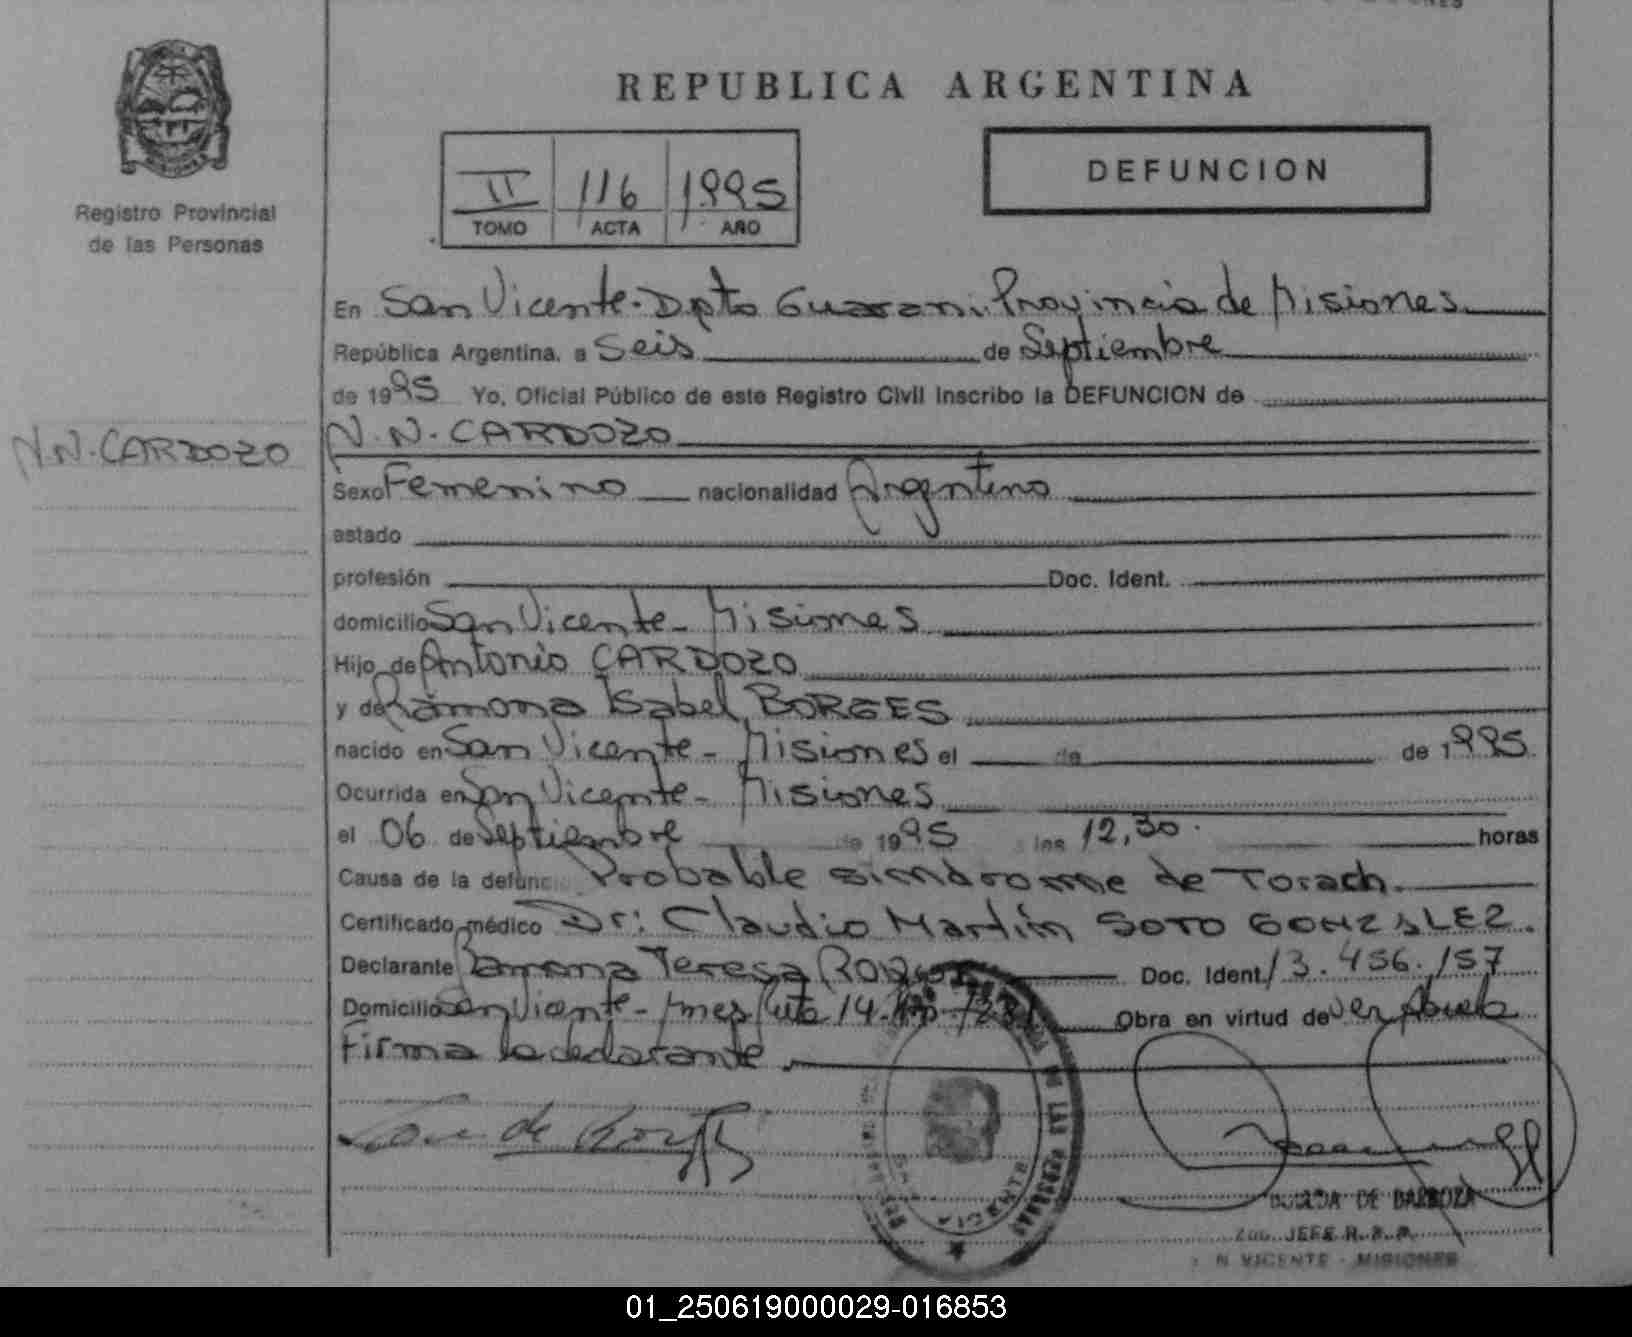 REPUBLICA ARGENTINA
Registro Provincial
de las Personas
II 116 1995
TOMO ACTA AÑO
DEFUNCION
En San Vicente - Dpto Guarani. Provincia de Misiones
República Argentina, a Seis de Septiembre
de 1995 Yo, Oficial Público de este Registro Civil Inscribo la DEFUNCION de
N.N. CARDOZO
N.N. CARDOZO
Sexo Femenino nacionalidad Argentino
estado
profesión Doc. Ident.
domicilio San Vicente - Misiones
Hijo de Antonio CARDOZO
y de Ramona Isabel BORGES
nacido en San Vicente - Misiones el de de 1995.
Ocurrida en San Vicente - Misiones
el 06 de Septiembre de 1995 a las 12,30. horas
Causa de la defunción Probable sindrome de Torach.
Certificado médico Dr: Claudio Martín SOTO GONZALEZ.
Declarante Ramona Teresa Doc. Ident. 13.456.157
Domicilio San Vicente - Mnes Ruta 14. Obra en virtud de ser Abuela
Firma la declarante
DE LAS PERSONAS
VICENTE
DE BARBOZA
JEFE R.P.P.
N VICENTE - MISIONES
01_250619000029-016853